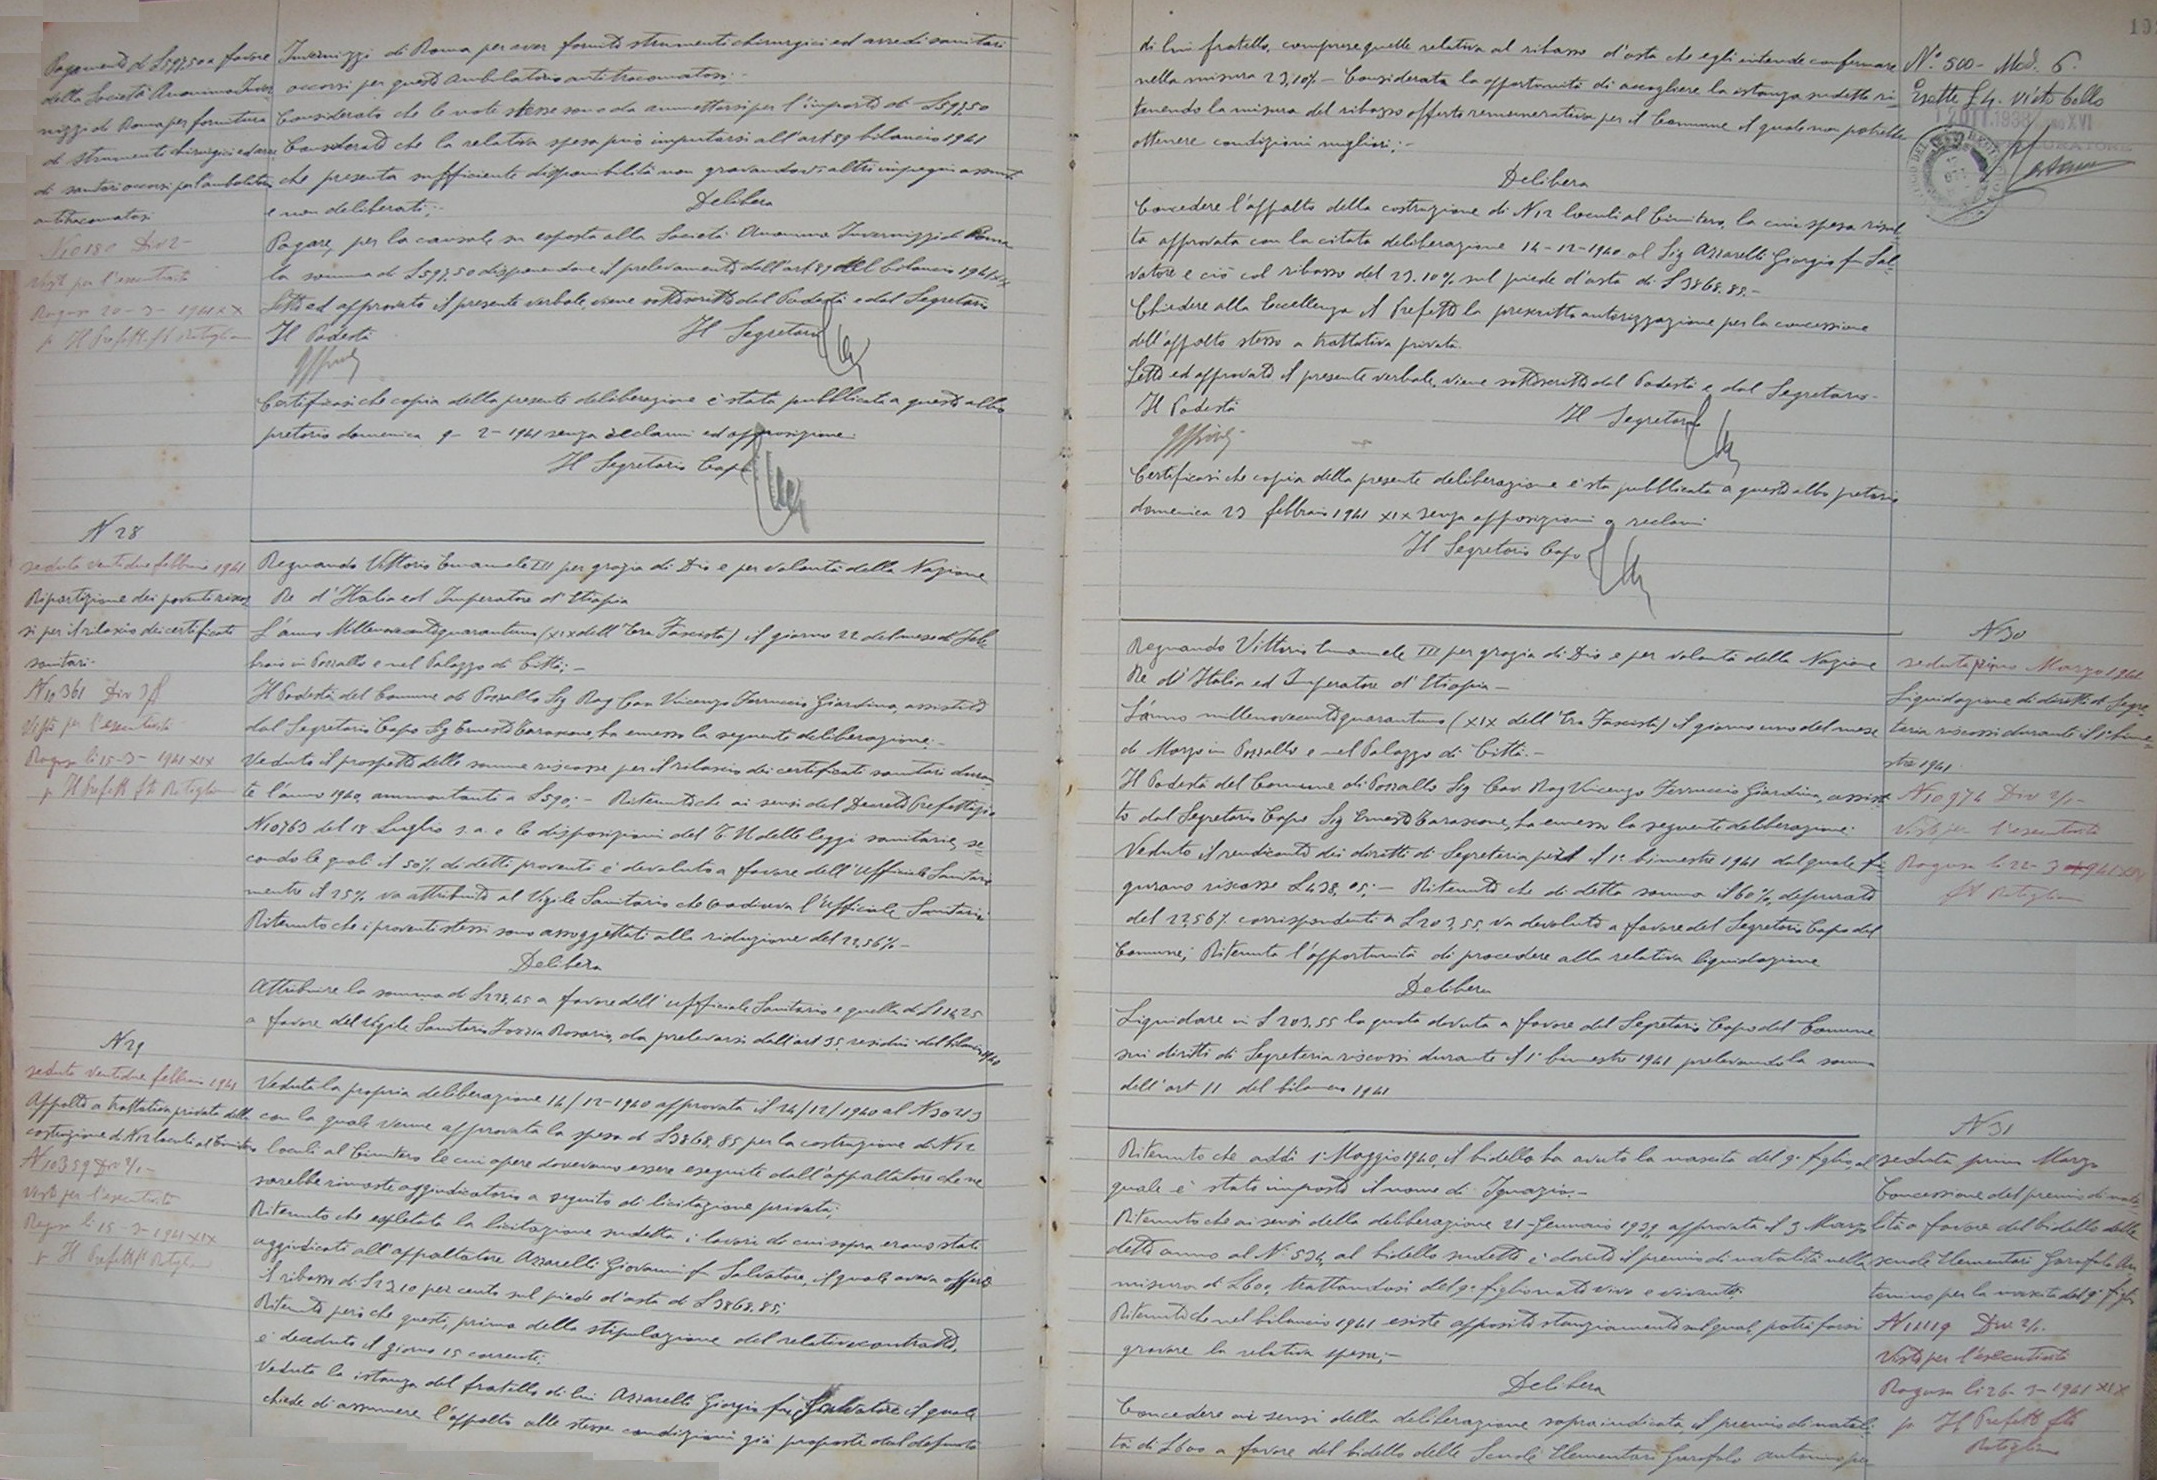 Pagamento di L 597,50 a favore
della Società Anonima Inver
nizzi di Roma per fornitura
di strumenti chirurgici ed arre
di sanitari occorsi per l'ambulatorio
antitracomatosi
N 10180 Div 2-
Visto per l'esecutività
Ragusa 20-3-1941 XX
p Il Prefetto
Invernizzi di Roma per aver fornito strumenti chirurgici ed arredi sanitari
occorsi per questo ambulatorio antitracomatosi;-
Considerato che le note stesse sono da ammettersi per l'importo di L 597,50
Considerato che la relativa spesa può imputarsi all'art 89 bilancio 1941
che presenta sufficiente disponibilità non gravandovi altri impegni assunti
e non deliberati;-
Delibera
Pagare, per la causale su esposta alla Società Anonima Invernizzi di Roma
la somma di L 597,50 disponendone il prelevamento dall'art 89 del bilancio 1941 XIX
Letto ed approvato il presente verbale, viene sottoscritto dal Podestà e dal Segretario
Il Podestà Il Segretario
Certificasi che copia della presente deliberazione è stata pubblicata a questo albo
pretorio domenica 9-2-1941 senza reclami ed opposizione.
Il Segretario Capo
N 28
seduta ventidue febbraio 1941
Ripartizione dei proventi riscos
si per il rilascio dei certificati
sanitari.
N 10361 Div 3
Visto per l'esecutività
Ragusa li 15-3-1941 XIX
p Il Prefetto
Regnando Vittorio Emanuele III per grazia di Dio e per volontà della Nazione
Re d'Italia ed Imperatore d'Etiopia
L'anno Millenovecentoquarantuno (XIX dell'Era Fascista) il giorno 22 del mese di Feb
braio in Pozzallo e nel Palazzo di Città;-
Il Podestà del Comune di Pozzallo Sig Rag Cav Vincenzo Ferruccio Giardina, assistito
dal Segretario Capo Sig Ernesto Tarascone, ha emesso la seguente deliberazione:-
Veduto il prospetto delle somme riscosse per il rilascio dei certificati sanitari duran
te l'anno 1940, ammontanti a L 590;- Ritenuto che ai sensi del Decreto Prefettizio
N 10763 del 18 Luglio s.a. e le disposizioni del T.U. delle leggi sanitarie, se-
condo le quali il 50% di detti proventi è devoluto a favore dell'Ufficiale Sanitario
mentre il 25% va attribuito al Vigile Sanitario che coadiuva l'Ufficiale Sanitario
Ritenuto che i proventi stessi sono assoggettati alla riduzione del 22,56%-
Delibera
Attribuire la somma di L 228,45 a favore dell'Ufficiale Sanitario e quella di L 114,25
a favore del Vigile Sanitario Rosario, da prelevarsi dall'art 35 residui del bilancio 1940
N 29
seduta ventidue febbraio 1941
Appalto a trattativa privata della
costruzione di N 12 loculi al Cimitero
N 10359 Div 2/1-
Visto per l'esecutività
Ragusa li 15-3-1941 XIX
p Il Prefetto
Veduta la propria deliberazione 14/12-1940 approvata il 24/12/1940 al N 30213
con la quale venne approvata la spesa di L 3868,85 per la costruzione di N 12
loculi al Cimitero le cui opere dovevano essere eseguite dall'appaltatore che ne
sarebbe rimasto aggiudicatario a seguito di licitazione privata;
Ritenuto che espletata la licitazione sudetta i lavori di cui sopra erano stati
aggiudicati all'appaltatore Azzarelli Giovanni fu Salvatore, il quale aveva offerto
il ribasso di L 23,10 per cento sul piede d'asta di L 3868,85;
Ritenuto però che questi, prima della stipulazione del relativo contratto,
è deceduto il giorno 15 corrente;
Veduta la istanza del fratello di lui Azzarelli Giorgio fu Salvatore il quale
chiede di assumere l'appalto alle stesse condizioni già proposte dal defunto
di lui fratello, comprese quelle relativa al ribasso d'asta che egli intende confermare
nella misura 23,10%- Considerata la opportunità di accogliere la istanza sudetta ri-
tenendo la misura del ribasso offerto remunerativa per il Comune il quale non potrebbe
ottenere condizioni migliori;-
Delibera
Concedere l'appalto della costruzione di N 12 loculi al Cimitero, la cui spesa risul-
ta approvata con la citata deliberazione 14-12-1940 al Sig Azzarelli Giorgio fu Sal-
vatore e ciò col ribasso del 23.10% sul piede d'asta di L 3868.85.-
Chiedere alla Eccellenza il Prefetto la prescritta autorizzazione per la concessione
dell'appalto stesso a trattativa privata.
Letto ed approvato il presente verbale, viene sottoscritto dal Podestà e dal Segretario.
Il Podestà Il Segretario
Certificasi che copia della presente deliberazione è sta pubblicata a questo albo pretorio
domenica 23 febbraio 1941 XIX senza opposizioni o reclami
Il Segretario Capo
N° 500 - Mod. 6.
Esatte L 4. visto bollo
N 30
seduta primo Marzo 1941
Liquidazione di diritti di Segre-
teria riscossi durante il 1° bime-
stre 1941
N 10974 Div 2/1-
Visto per l'esecutività
Ragusa li 22-3-1941 XIX
Regnando Vittorio Emanuele III per grazia di Dio e per volontà della Nazione
Re d'Italia ed Imperatore d'Etiopia-
L'anno millenovecentoquarantuno (XIX dell'Era Fascista) il giorno uno del mese
di Marzo in Pozzallo e nel Palazzo di Città.-
Il Podestà del Comune di Pozzallo Sig Cav. Rag Vincenzo Ferruccio Giardina, assisti
to dal Segretario Capo Sig Ernesto Tarascone, ha emesso la seguente deliberazione:
Veduto il rendiconto dei diritti di Segreteria per il 1° bimestre 1941 dal quale fi-
gurano riscosse L 438,05;- Ritenuto che di detta somma il 60%, depurato
del 22,56% corrispondenti a L 203,55, va devoluto a favore del Segretario Capo del
Comune; Ritenuta l'opportunità di procedere alla relativa liquidazione
Delibera
Liquidare in L 203,55 la quota dovuta a favore del Segretario Capo del Comune
sui diritti di Segreteria riscossi durante il 1° bimestre 1941 prelevando la somma
dell'art 11 del bilancio 1941
N 31
seduta primo Marzo
Concessione del premio di nata
lità a favore del bidello delle
scuole Elementari Garofalo An
tonino per la nascita del 9° figlio
N 11119 Div. 2/1.
Visto per l'esecutività
Ragusa li 26-3-1941 XIX
p Il Prefetto
Ritenuto che addì 1° Maggio 1940, il bidello ha avuto la nascita del 9° figlio, al
quale è stato imposto il nome di Ignazio.-
Ritenuto che ai sensi della deliberazione 21-Gennaio 1939, approvata il 3 Marzo
detto anno al N° 534, al bidello sudetto è dovuto il premio di natalità nella
misura di L 600, trattandosi del 9° figlio nato vivo e vivente;
Ritenuto che nel bilancio 1941 esiste apposito stanziamento sul quale potrà farsi
gravare la relativa spesa;-
Delibera
Concedere ai sensi della deliberazione sopraindicata, il premio di natali
tà di L 600 a favore del bidello delle Scuole Elementari Garofalo Antonino per